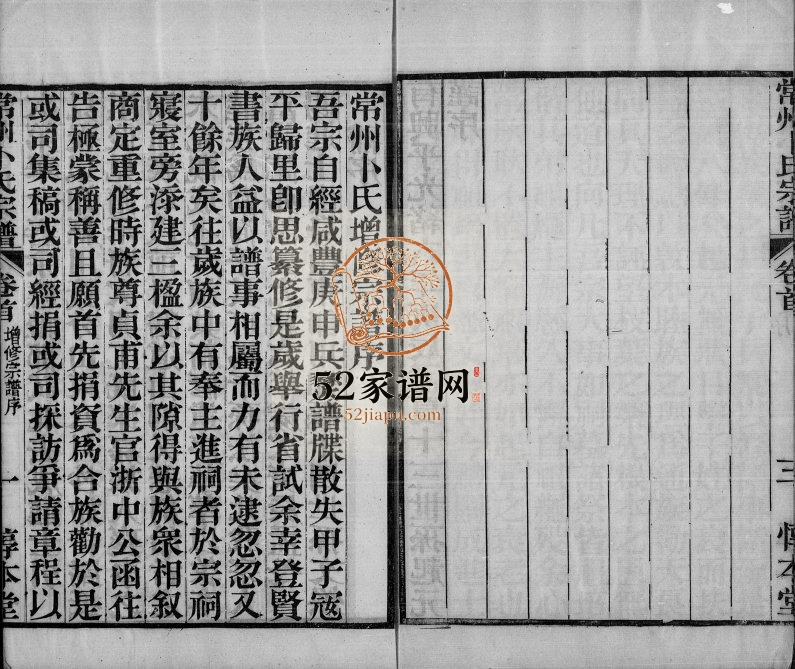 常州卜氏宗譜
卷首
三
惇本堂
常州卜氏增修宗譜序
吾宗自經咸豐庚申兵 譜牒散失甲子冦
平歸里卽思纂修是歲舉行省試余幸登賢
書族人益以譜事相屬而力有未逮忽忽又
十餘年矣往歲族中有奉主進祠者於宗祠
寢室旁添建三楹余以其隙得與族衆相叙
商定重修時族尊貞甫先生官浙中公函往
告極蒙稱善且願首先捐資爲合族勸於是
或司集稿或司經捐或司採訪爭請章程以
常州卜氏宗譜
卷首
增修宗譜序
一
惇本堂
52家谱网
52jiapu.com